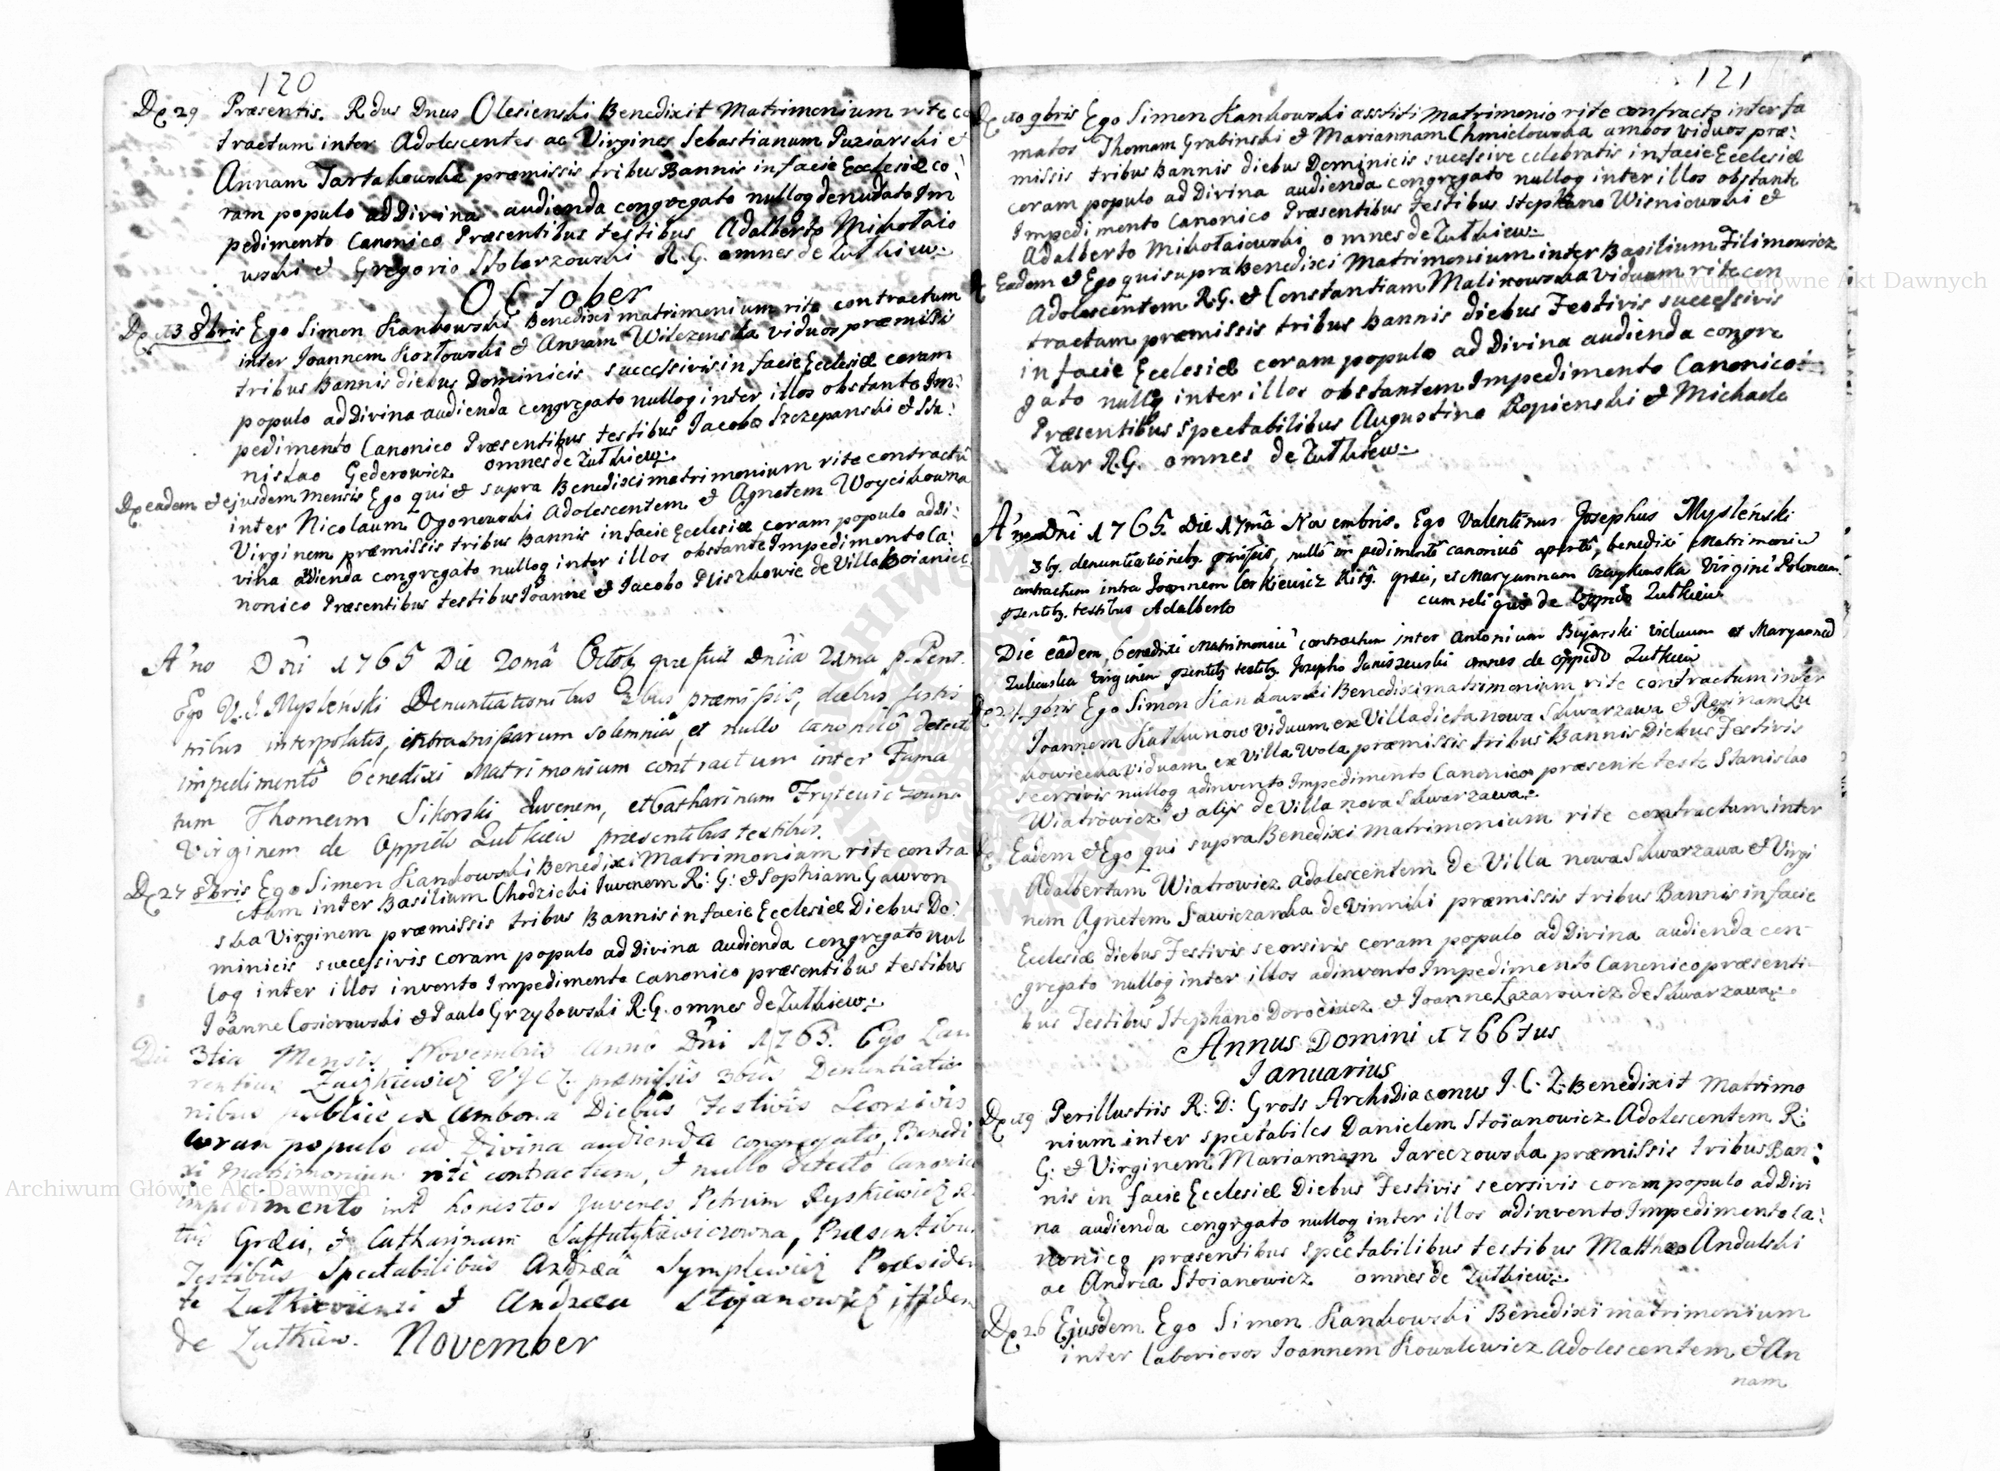 120
De 29 Præsentis. Rdus Dnus Olesienski Benedixit Matrimonium rite co
tractum inter Adolescentes ac Virgines Sebastianum Puziarski et
Annam Tartakowska præmissis tribus Bannis in facie Ecclesiæ co:
ram populo ad Divina audienda congregato nulloq denudato Im
pedimento Canonico Præsentibus testibus Adalberto Mikołaio
wski et Gregorio Stolarzowski R.G. omnes de Zułkiew.
October
De 13 8bris Ego Simon Kankowski Benedixi matrimonium rite contractum
inter Joannem Kozłowski et Annam Wilczewska viduos præmissis
tribus Bannis diebus Dominicis successivis in facie Ecclesiæ coram
populo ad Divina audienda congregato nulloq inter illos obstante Im:
pedimento Canonico Præsentibus testibus Jacobo Szczepanski et Sta:
nislao Gederowicz omnes de Zułkiew.
De eadem et ejusdem mensis Ego qui et supra Benedixi matrimonium rite contractu
inter Nicolaum Ogonowski Adolescentem et Agnetem Woycikowna
Virginem præmissis tribus Bannis in facie Ecclesiæ coram populo ad Di:
vina audienda congregato nulloq inter illos obstante Impedimento Ca:
nonico Præsentibus testibus Joanne et Jacobo Pliszkowie de Villa Boianiec.
A'no Dni 1765 Die 20mâ Octob. quæ fuit Dnica 21ma p. Pent.
Ego V. J. Mysleński Denuntiationibus 3bus præmissis, diebus festis
tribus interpolatis, intra missarum solemnia, et nullo canonicô detect
impedimentô benedixi Matrimonium contractum inter Fama
tum Thomam Sikorski Juvenem, et Catharinam Fryteviczowna
Virginem de Oppido Zułkiew præsentibus testibus.
De 27 8bris Ego Simon Kankowski Benedixi Matrimonium rite contra
ctum inter Basilium Chodzicki Juvenem R: G: et Sophiam Gawron
ska Virginem præmissis tribus Bannis in facie Ecclesiæ Diebus Do:
minicis successivis coram populo ad Divina audienda congregato nul
loq inter illos invento Impedimento Canonico præsentibus testibus
Joanne Cosierowski et Paulo Grzybowski R.G. omnes de Zułkiew.
Die 3tia Mensis Novembris Anno Dni 1765. Ego Lau
rentius præmissis 3bus Denuntiatio
nibus publice ex Ambona Diebus Festivis Seorsivis
coram populo ad Divina audienda congregato, Benedi
xi Matrimonium ritè contractum, et nullo detecto Canonico
impedimento int honestos Juvenes Petrum Dyskiewicz
tûs Græci, et Catharinam Præsentibus
Testibus Spectabilibus Andrea Symplewicz Præsiden
te Zułkieviensi et Andrea Stojanowicz itidem
de Zułkiew. November
121
De 10 9bris Ego Simon Kankowski astiti Matrimonio rite contracto inter fa
matos Thomam Grabinski et Mariannam Chmielowska ambos viduos præ:
missis tribus Bannis diebus Dominicis sucessive celebratis in facie Ecclesiæ
coram populo ad Divina audienda congregato nulloq inter illos obstante
Impedimento Canonico Præsentibus testibus Stephano Wisniowski et
Adalberto Mikołaiowski omnes de Zułkiew.
De Eadem et Ego qui supra Benedixi Matrimonium inter Basilium Filimowicz
Adolescentem R.G. et Constantiam Malinowska viduam rite con
tractum præmissis tribus Bannis diebus Festivis successivis
in facie Ecclesiæ coram populo ad Divina audienda congre
gato nulloq inter illos obstantem Impedimento Canonico
Præsentibus spectabilibus Augustino Ropienski et Michaele
Zur R.G. omnes de Zułkiew.
A'no Dni 1765. Die 17mâ Novembris. Ego Valentinus Josephus Mysleński
3bg. denuntiationibg. pmissis, nullô impedimentô canonicô apertô, benedixi Matrimoniu
contractum intra Joannem Cerkiewicz Ritg. græci, et Maryannam Virginê Polonam.
psentibg. testibus Adalberto cum reliquis de Oppido Zułkiew
Die eâdem, benedixi Matrimoniû contractum inter Antonium Bujarski viduum et Maryannâ
Zulicuska Virginem psentibg testibg. Josepho Janiszewski omnes de oppido Zułkiew
De 24 9bris Ego Simon Kankowski Benedixi matrimonium rite contractum inter
Joannem Kutkunow Viduum ex Villa dicta nowa Skwarzawa et Reginam Lu
kowiecka viduam ex Villa Wola præmissis tribus Bannis Diebus Festivis
seorsivis nulloq adinvento Impedimento Canonico præsente teste Stanislao
Wiatrowicz et alijs de Villa nova Skwarzawa.
De Eadem et Ego qui supra Benedixi matrimonium rite contractum inter
Adalbertum Wiatrowicz Adolescentem de Villa nowa Skwarzawa et Virgi
nem Agnetem Sawiczanka de Vinniki præmissis tribus Bannis in facie
Ecclesiæ diebus Festivis seorsivis coram populo ad Divina audienda con-
gregato nulloq inter illos adinvento Impedimento Canonico præsenti-
bus Testibus Stephano Dorociucz et Joanne Łazarowicz de Skwarzawa.
Annus Domini 1766tus
Januarius
De 19 Perillustris R: D: Gross Archidiaconus I. C. Z. Benedixit Matrimo
nium inter spectabiles Danielem Stoianowicz Adolescentem R:
G: et Virginem Mariannam Jareczowska præmissis tribus Ban:
nis in facie Ecclesiæ Diebus Festivis seorsivis coram populo ad Divi
na audienda congrgato nulloq inter illos adinvento Impedimento Ca:
nonico præsentibus spectabilibus testibus Mathæo Andulski
ac Andrea Stoianowicz omnes de Zułkiew.
De 26 Ejusdem Ego Simon Kankowski Benedixi matrimonium
inter Laboriosos Joannem Kowalewicz Adolescentem et An
nam
Archiwum Główne Akt Dawnych
Archiwum Główne Akt Dawnych